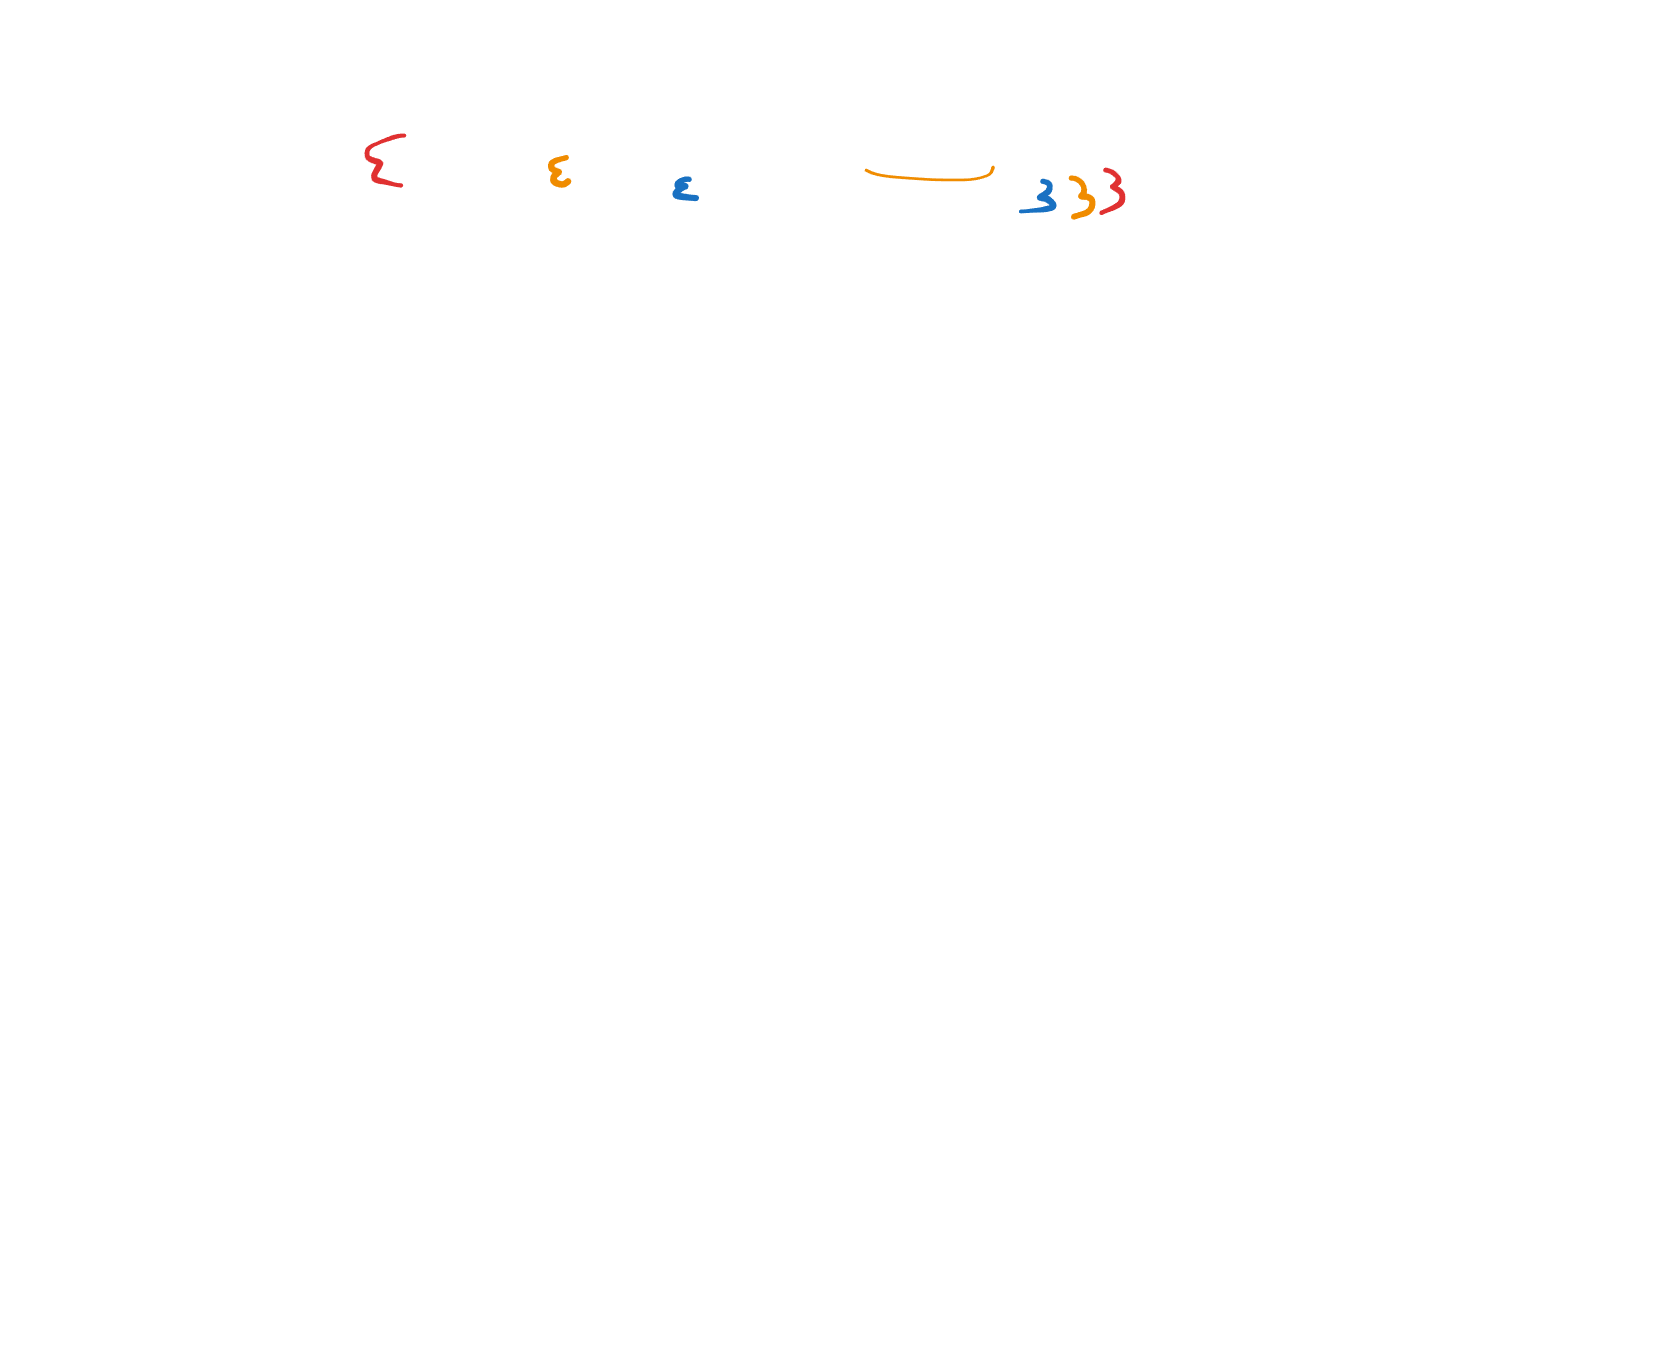 { { { } } }